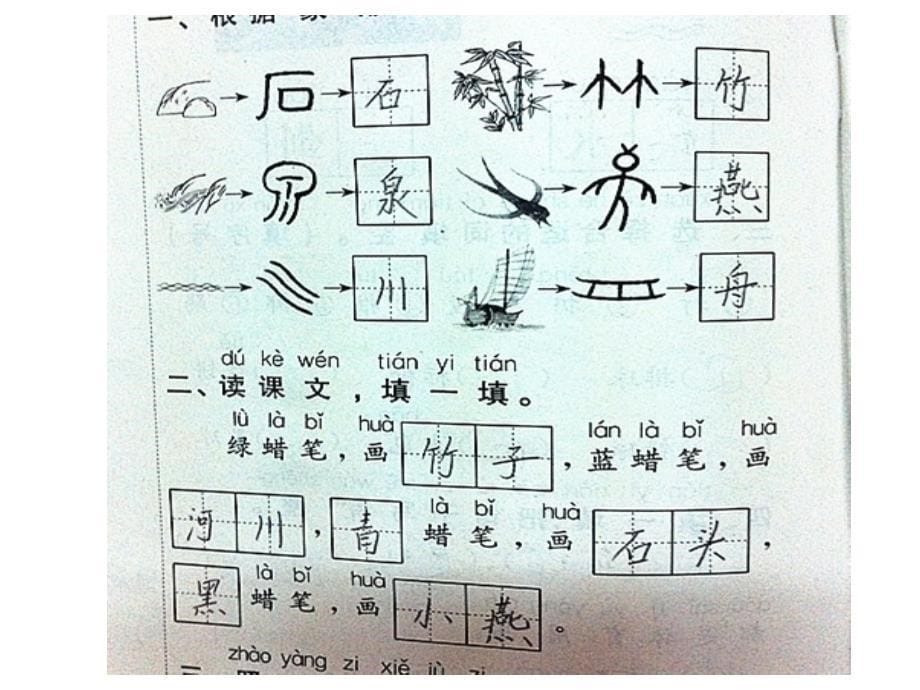 一、根据
石 石 竹
泉 燕
川 舟
dú kè wén tián yi tián
二、读课文，填一填。
lǜ là bǐ huà lán là bǐ huà
绿蜡笔，画竹子，蓝蜡笔，画
là bǐ huà
河川，青蜡笔，画石头，
là bǐ huà
黑蜡笔，画小燕。
zhào yàng zi xiě jù zi